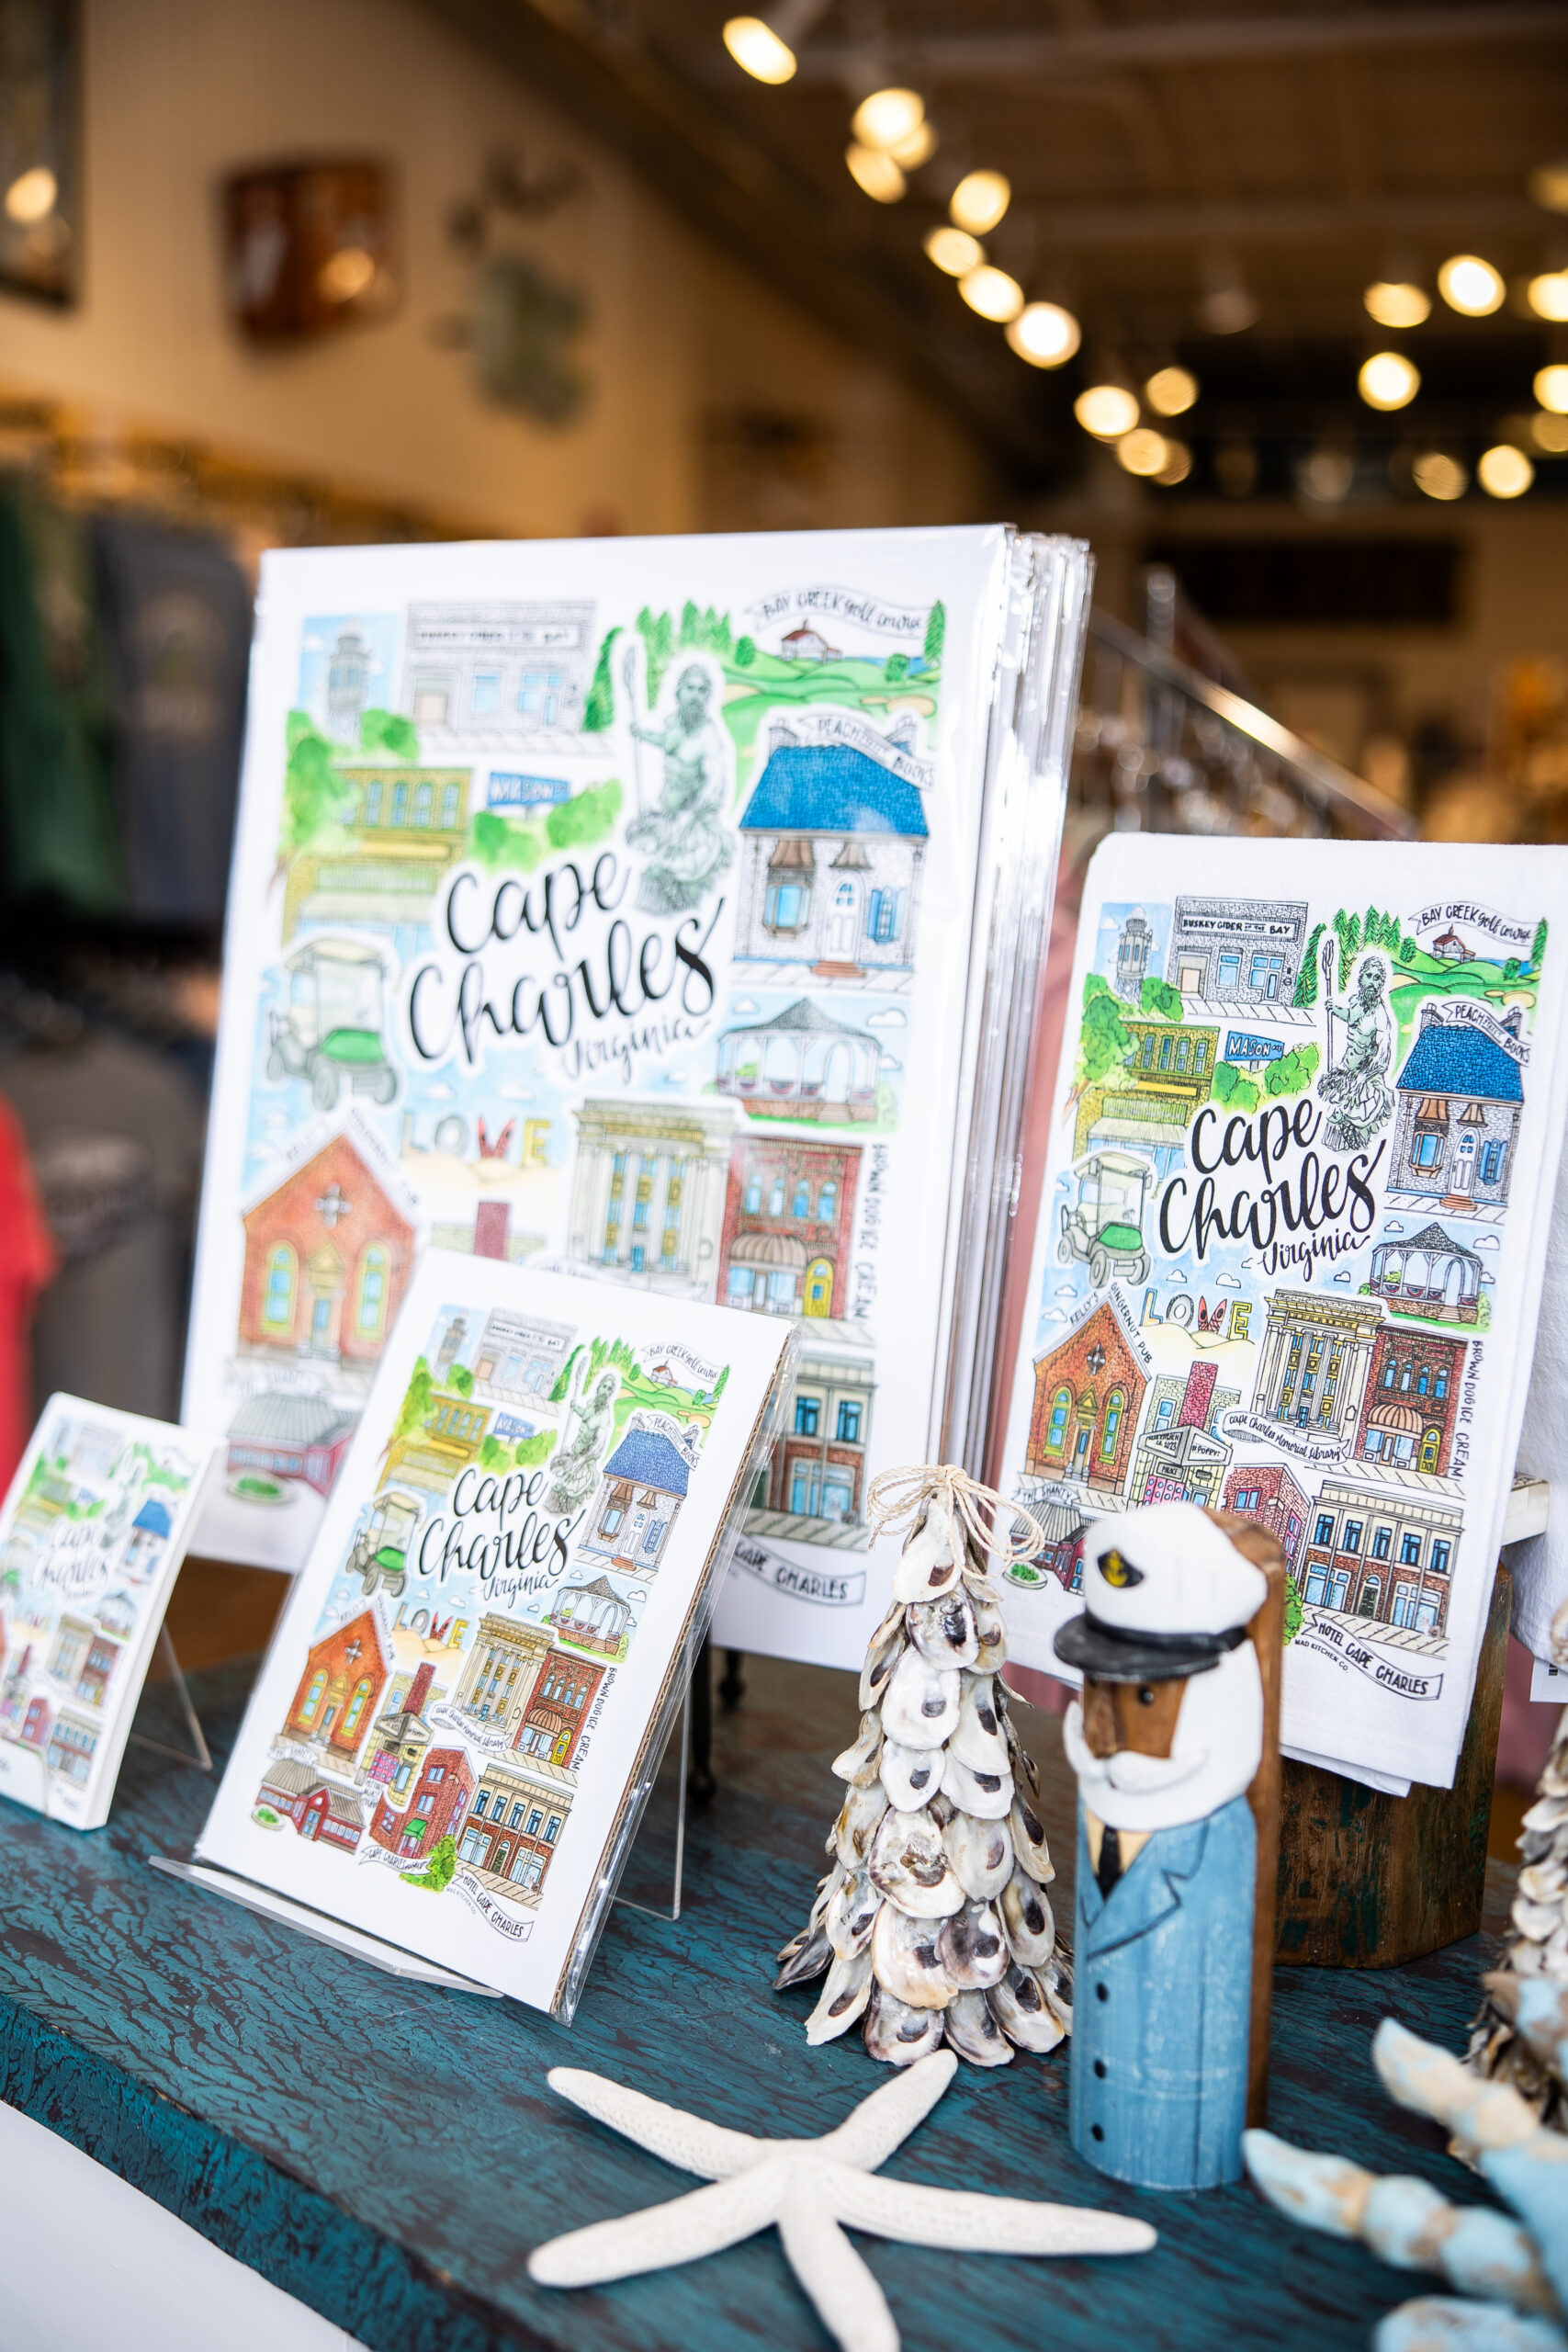 BUSKEY CIDER ON THE BAY
BAY CREEK golf course
MASON
PEACH BOOKS
Cape
Charles
Virginia
LOVE
BROWN DOG ICE CREAM
CAPE CHARLES
BUSKEY CIDER ON THE BAY
BAY CREEK golf course
MASON AVE
PEACH BOOKS
Cape
Charles
Virginia
LOVE
KELLY'S GINGERNUT PUB
BROWN DOG ICE CREAM
Cape Charles Memorial Library
THE SHANTY
HOTEL CAPE CHARLES
MAD KITCHEN CO.
BAY CREEK golf course
MASON
PEACH BOOKS
Cape
Charles
Virginia
LOVE
BROWN DOG ICE CREAM
Cape Charles Memorial Library
THE SHANTY
HOTEL CAPE CHARLES
MAD KITCHEN CO.
Cape
Charles